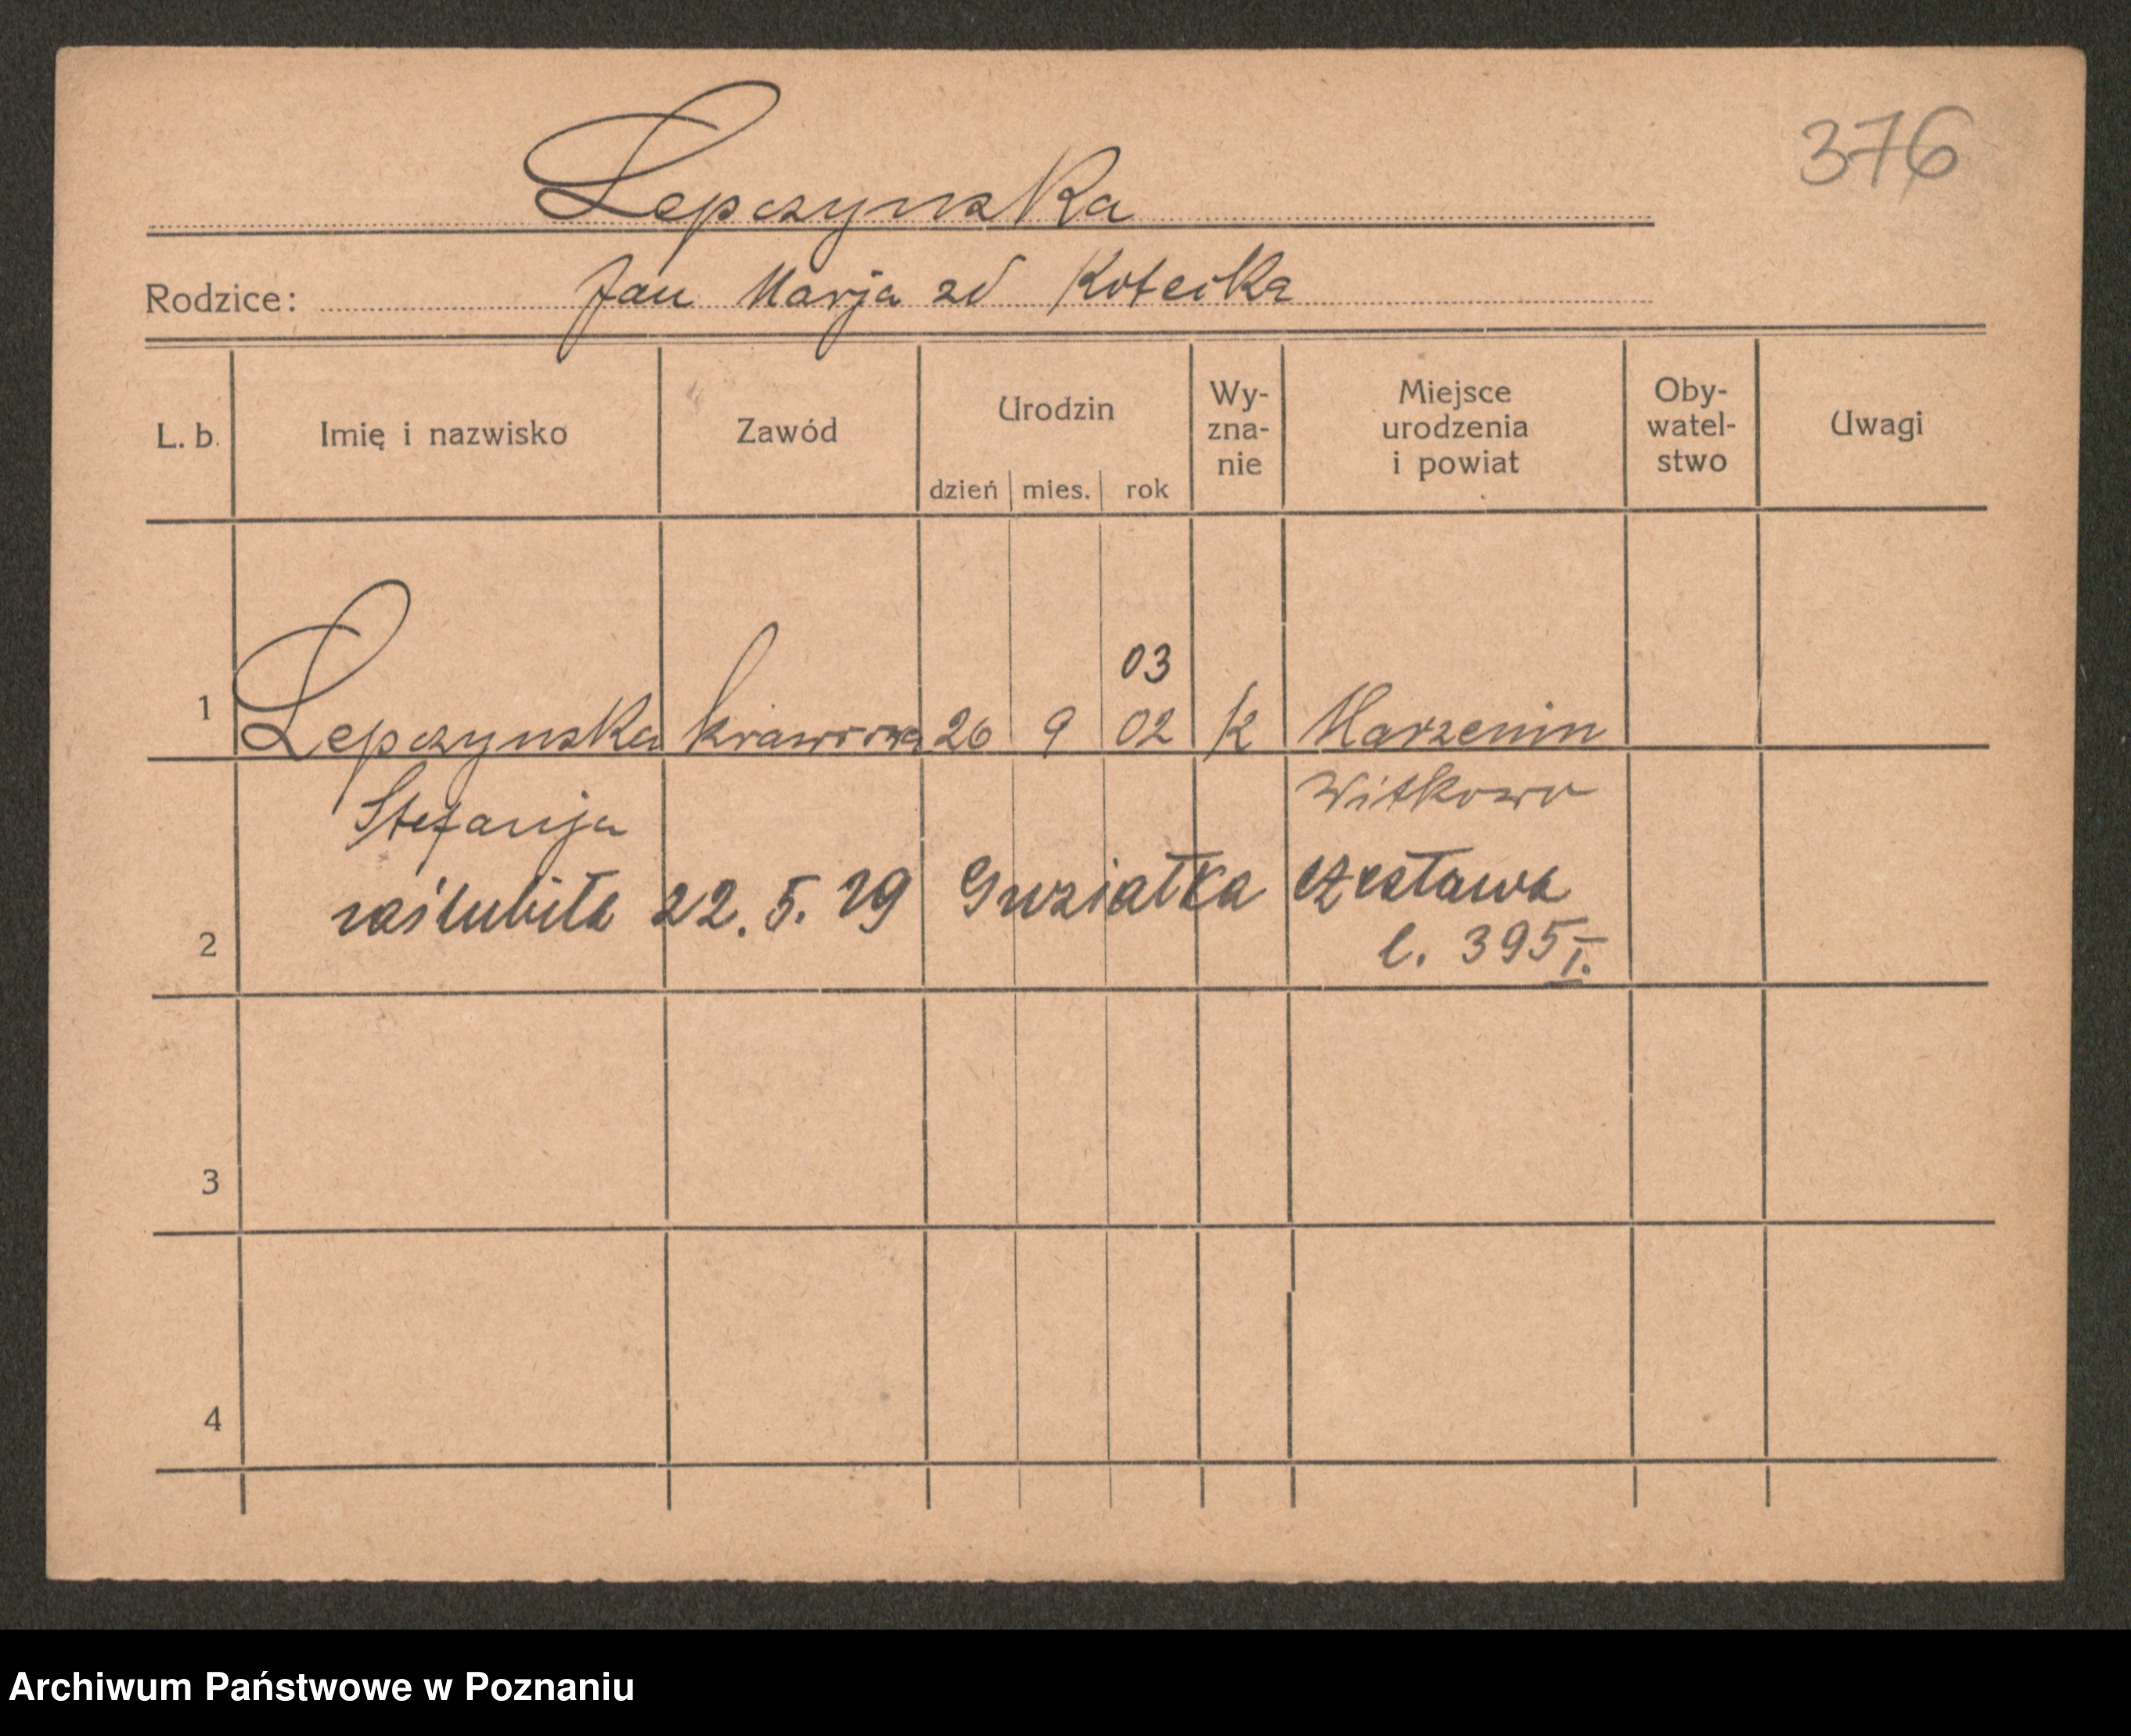 376
Lepczynska
Rodzice: Jan Marja zd Koteika
L. b. Imię i nazwisko Zawód Urodzin dzień mies. rok Wy- zna- nie Miejsce urodzenia i powiat Oby- watel- stwo Uwagi
03
1 Lepczynska krawcowa 26 9 02 k Marzenin
Stefanja Witkowo
zaślubiła 22. 5. 29 Guziałka Czesława
2 l. 395 I.
3
4
Archiwum Państwowe w Poznaniu